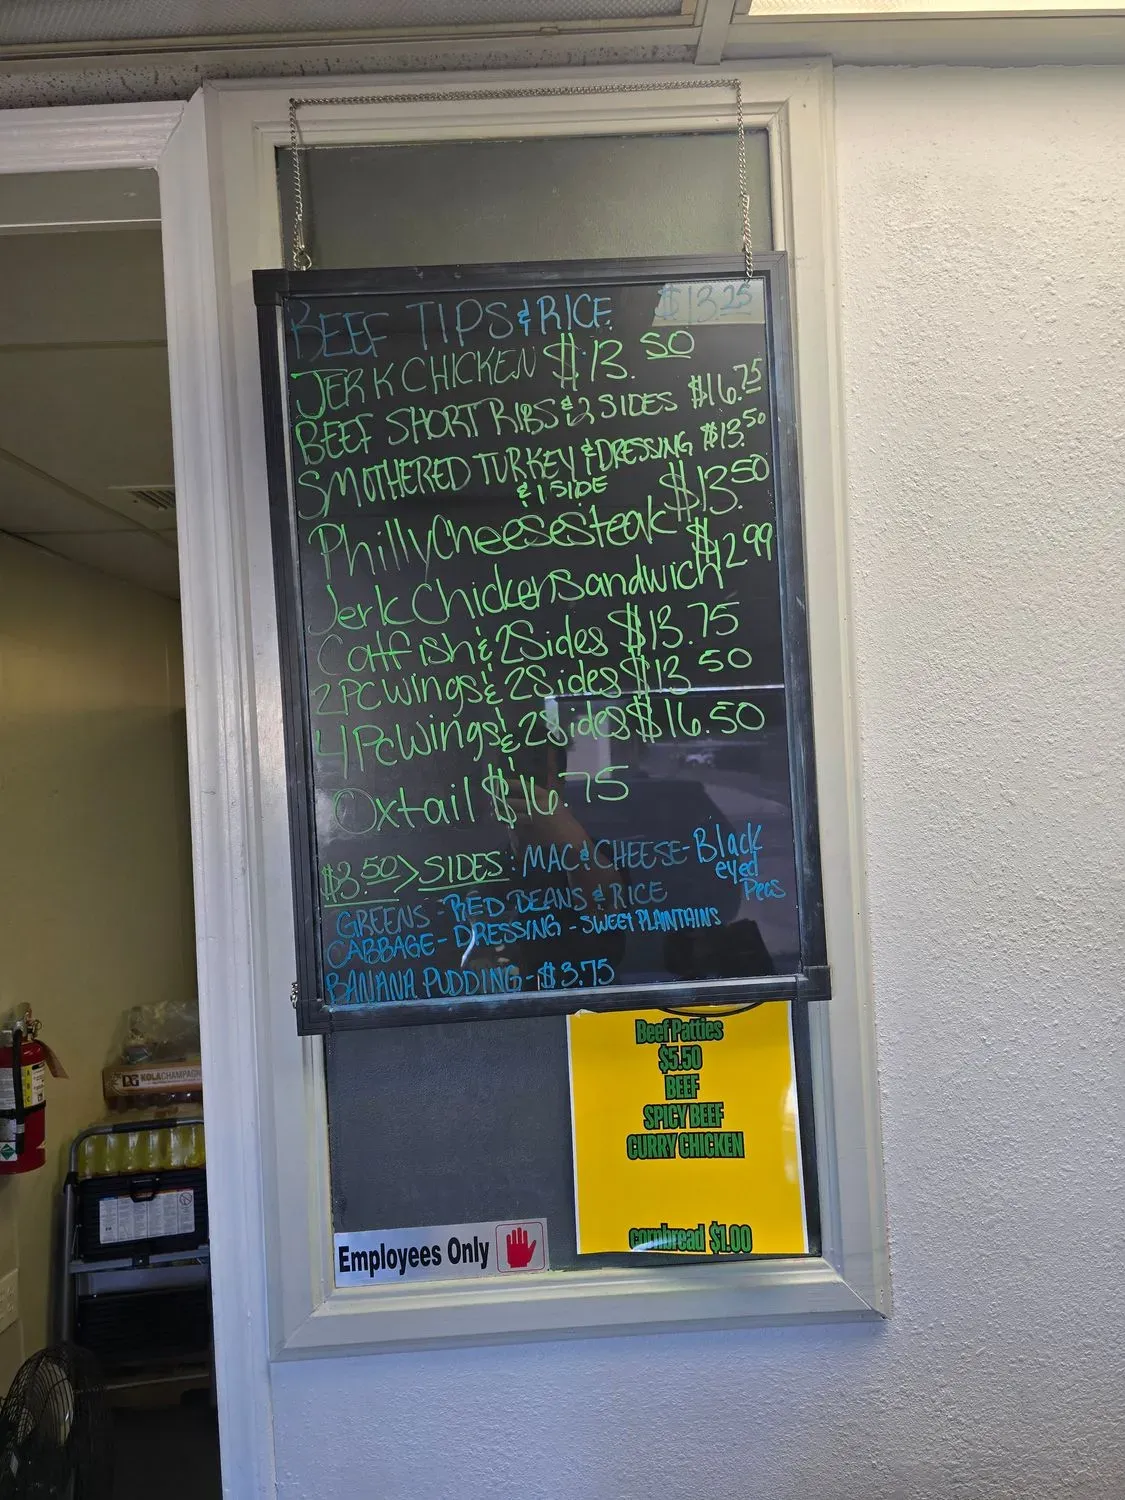 BEEF TIPS & RICE $13.25
JERK CHICKEN $13.50
BEEF SHORT RIBS & 2 SIDES $16.75
SMOTHERED TURKEY & DRESSING $13.50
& 1 SIDE
Philly Cheesesteak $13.50
Jerk Chicken Sandwich $12.99
Catfish & 2 Sides $13.75
2 PC Wings & 2 Sides $13.50
4 PC Wings & 2 Sides $16.50
Oxtail $16.75
$3.50 > SIDES: MAC & CHEESE - Black eyed Peas
GREENS - RED BEANS & RICE
CABBAGE - DRESSING - SWEET PLAINTAINS
BANANA PUDDING - $3.75
Beef Patties
$5.50
BEEF
SPICY BEEF
CURRY CHICKEN
cornbread $1.00
Employees Only
DG KOLA CHAMPAGNE